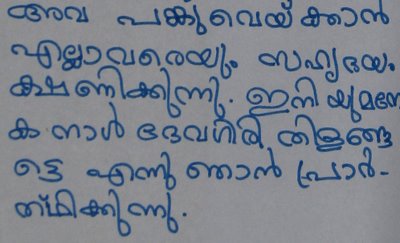 അവ പങ്കുവെയ്ക്കാൻ
എല്ലാവരെയും സഹൃദയം
ക്ഷണിക്കുന്നു. ഇനിയുമനേ
ക നാൾ ദേവഗിരി തിളങ്ങ
ട്ടെ എന്നു ഞാൻ പ്രാർ-
ത്ഥിക്കുന്നു.